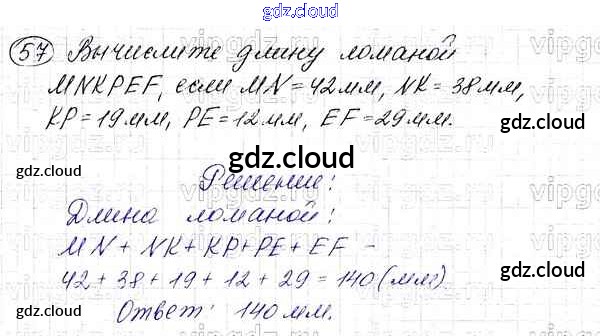 gdz.cloud
57 Вычислите длину ломаной
MNKPEF, если MN = 42мм, NK = 38мм,
KP = 19мм, PE = 12мм, EF = 29мм.
gdz.cloud
gdz.cloud
gdz.cloud
gdz.cloud
Решение:
Длина ломаной:
MN + NK + KP + PE + EF -
42 + 38 + 19 + 12 + 29 = 140 (мм)
gdz.cloud
gdz.cloud
Ответ: 140 мм.
gdz.cloud